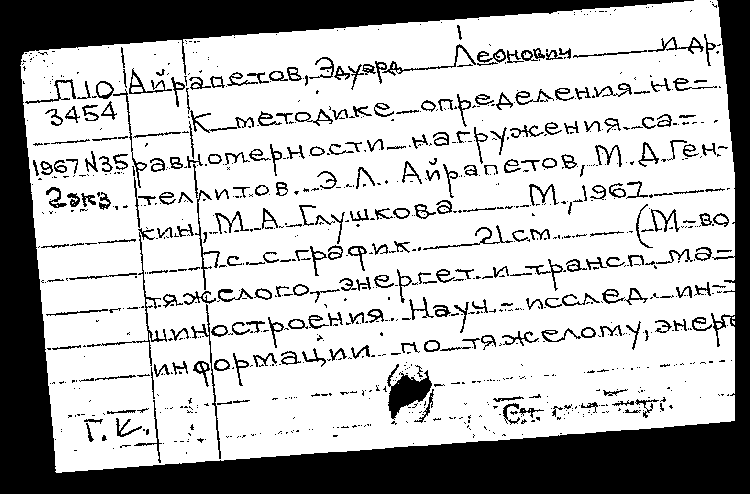 П10 Айрапетов, Эдуард Леонович и др.
3454 К методике определения не-
1967 N35 равномерности нагружения са-
2 экз. теллитов. Э. Л. Айрапетов, М. Д. Ген-
кин, М. А. Глушкова М., 1967
7 с. с график. 21 см (М-во
тяжелого, энергет. и трансп. ма-
шиностроения Науч.-исслед. ин-т
информации по тяжелому, энерге
Г. К. См.